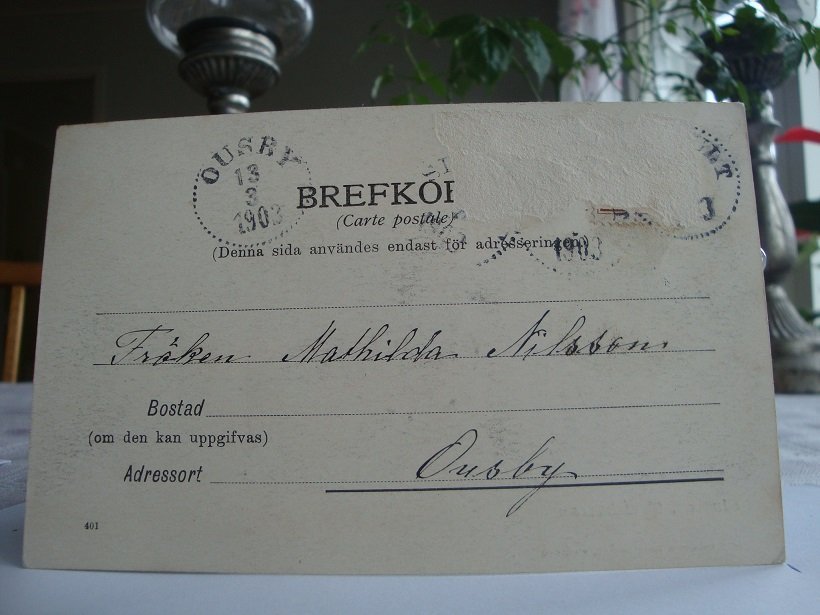 OUSBY
13
3
1903
LT
BREFKOR
(Carte postale)
3
(Denna sida användes endast för adresseringen)
1903
Fröken Mathilda Nilsson
Bostad
(om den kan uppgifvas)
Adressort Ousby
401